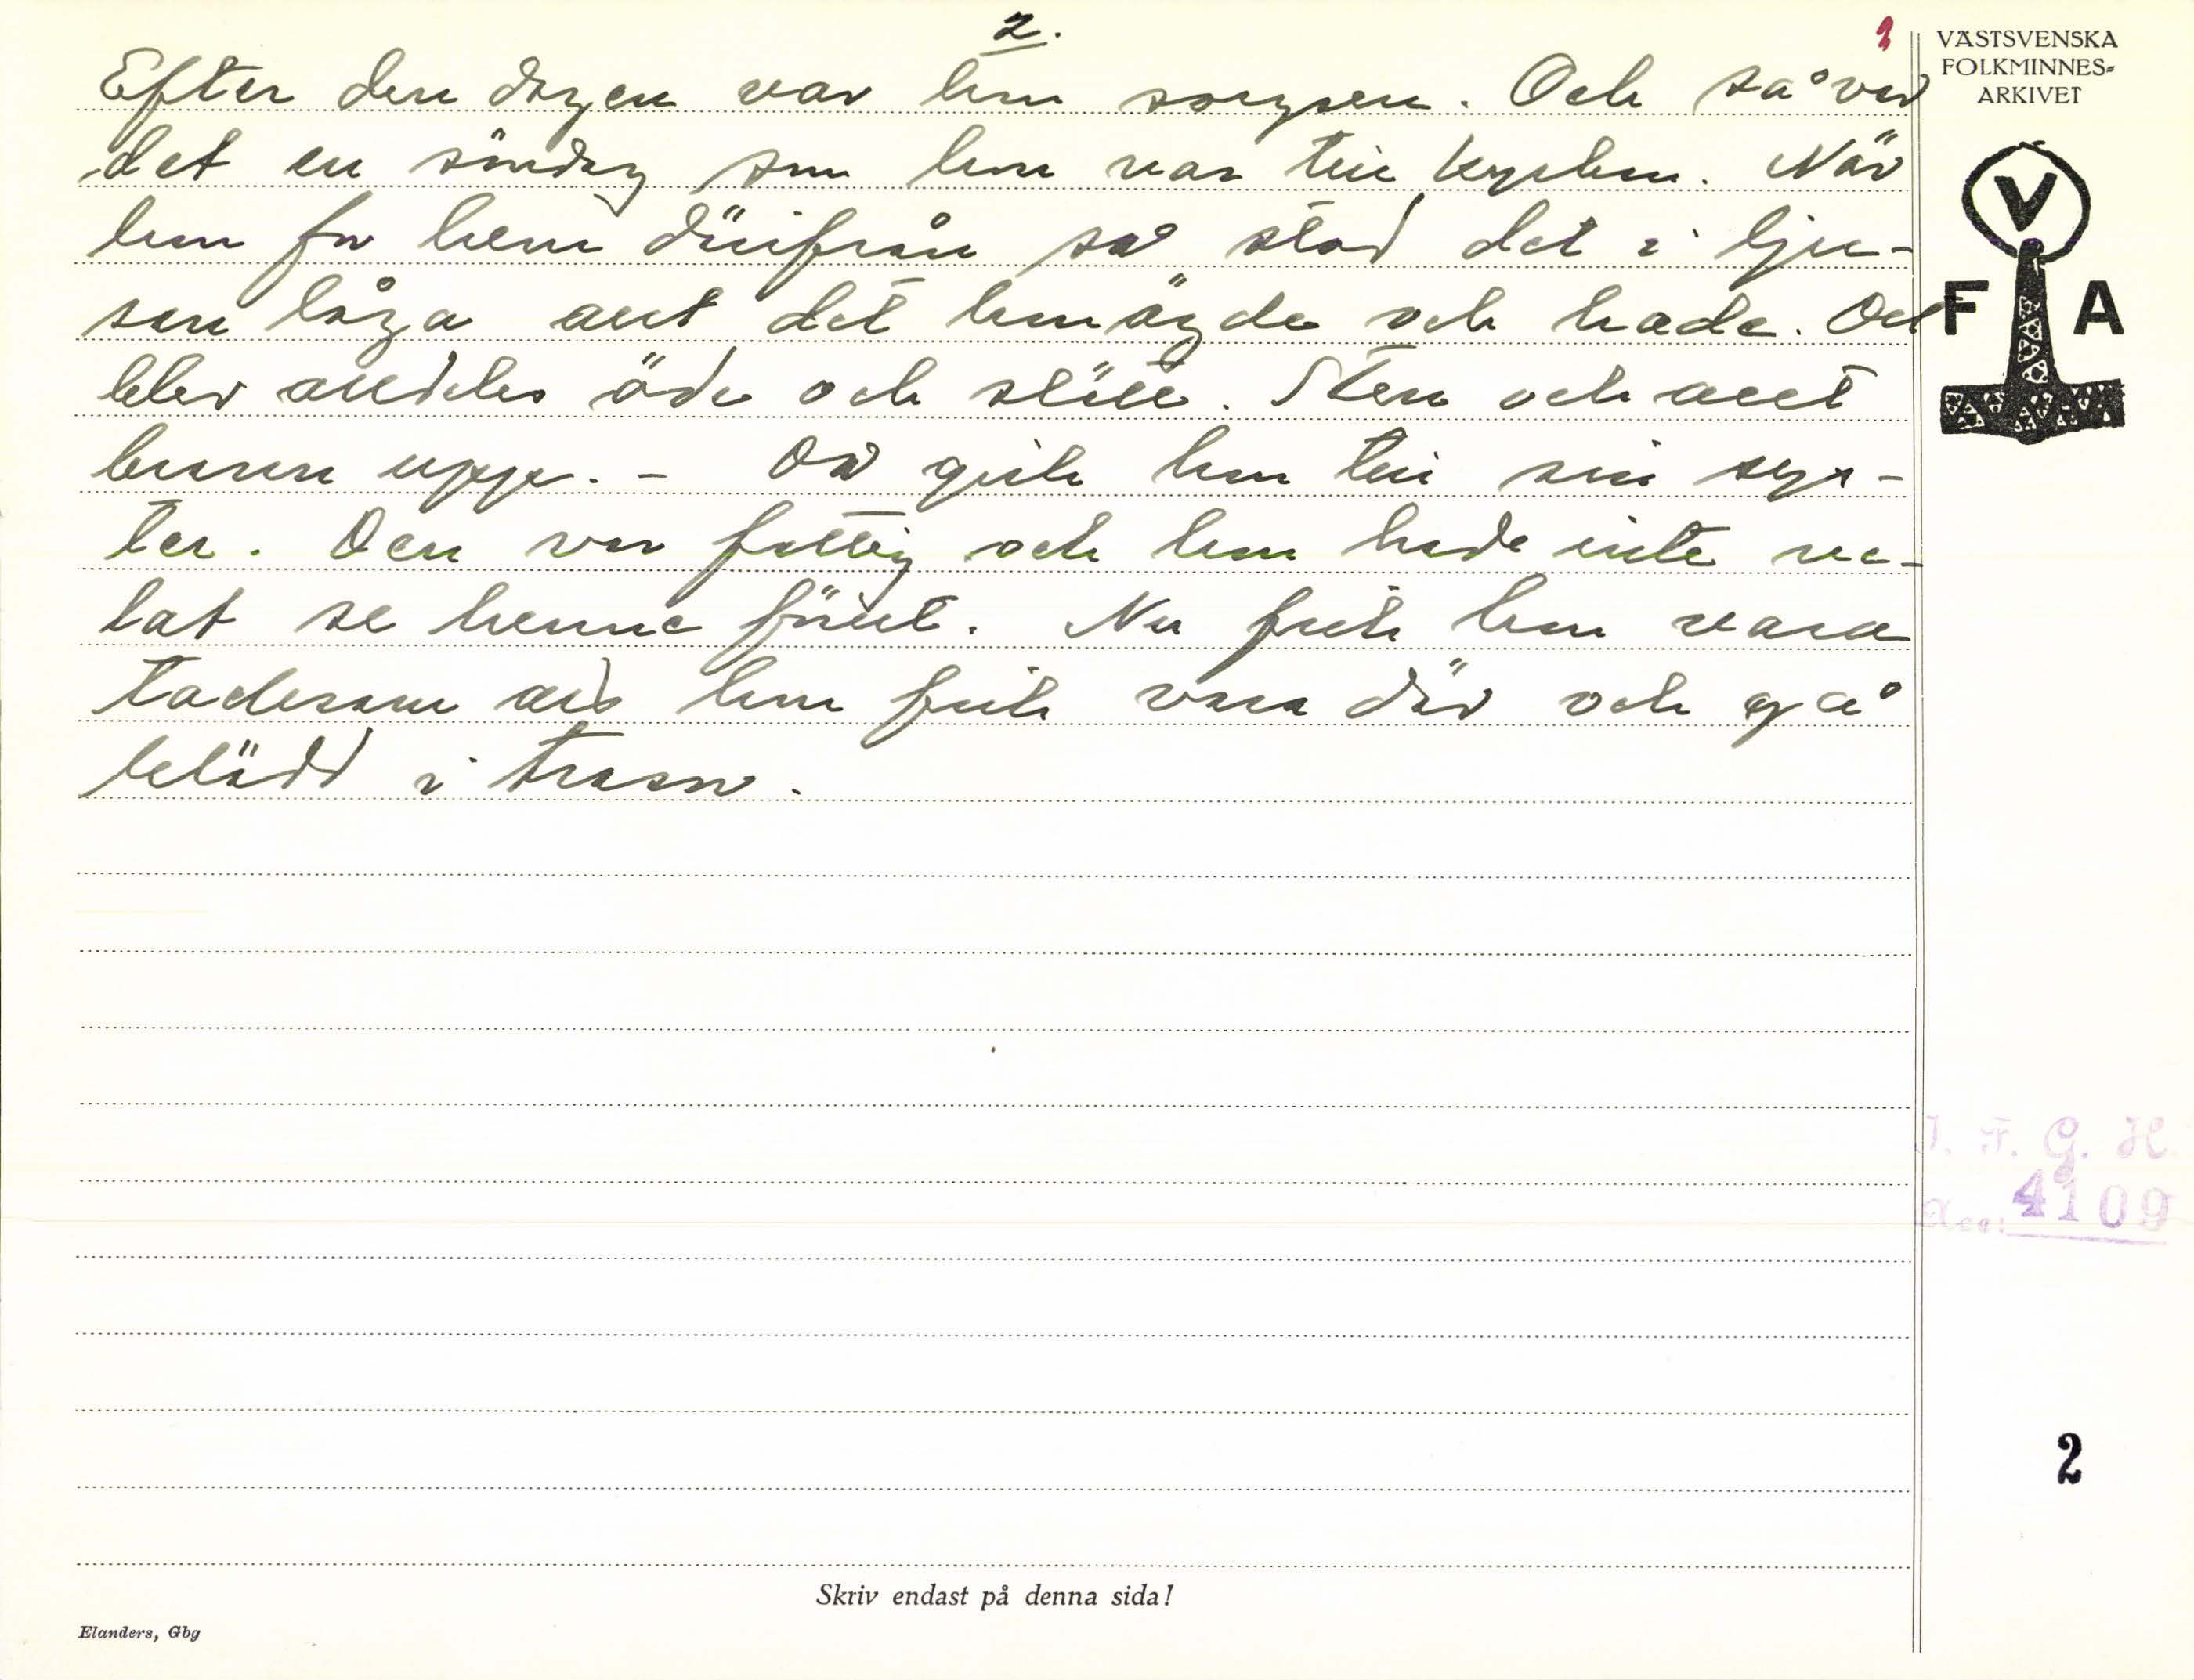 2.
Efter den dagen var hon sorgsen. Och så var
det en söndag som hon var till kyrkan. När
hon for hem därifrån så stod det i lju-
san låga allt det hon ägde och hade. Det
blev alldeles öde och slätt. Sten och allt
brann upp. - Då gick hon till sin sys-
ter. Den var fattig och hon hade inte ve-
lat se henne förut. Nu fick hon vara
tacksam att hon fick vara där och gå
klädd i trasor.
VÄSTSVENSKA
FOLKMINNES-
ARKIVET
V
F A
I. F. G. H.
Acc: 4109
2
Skriv endast på denna sida!
Elanders, Gbg